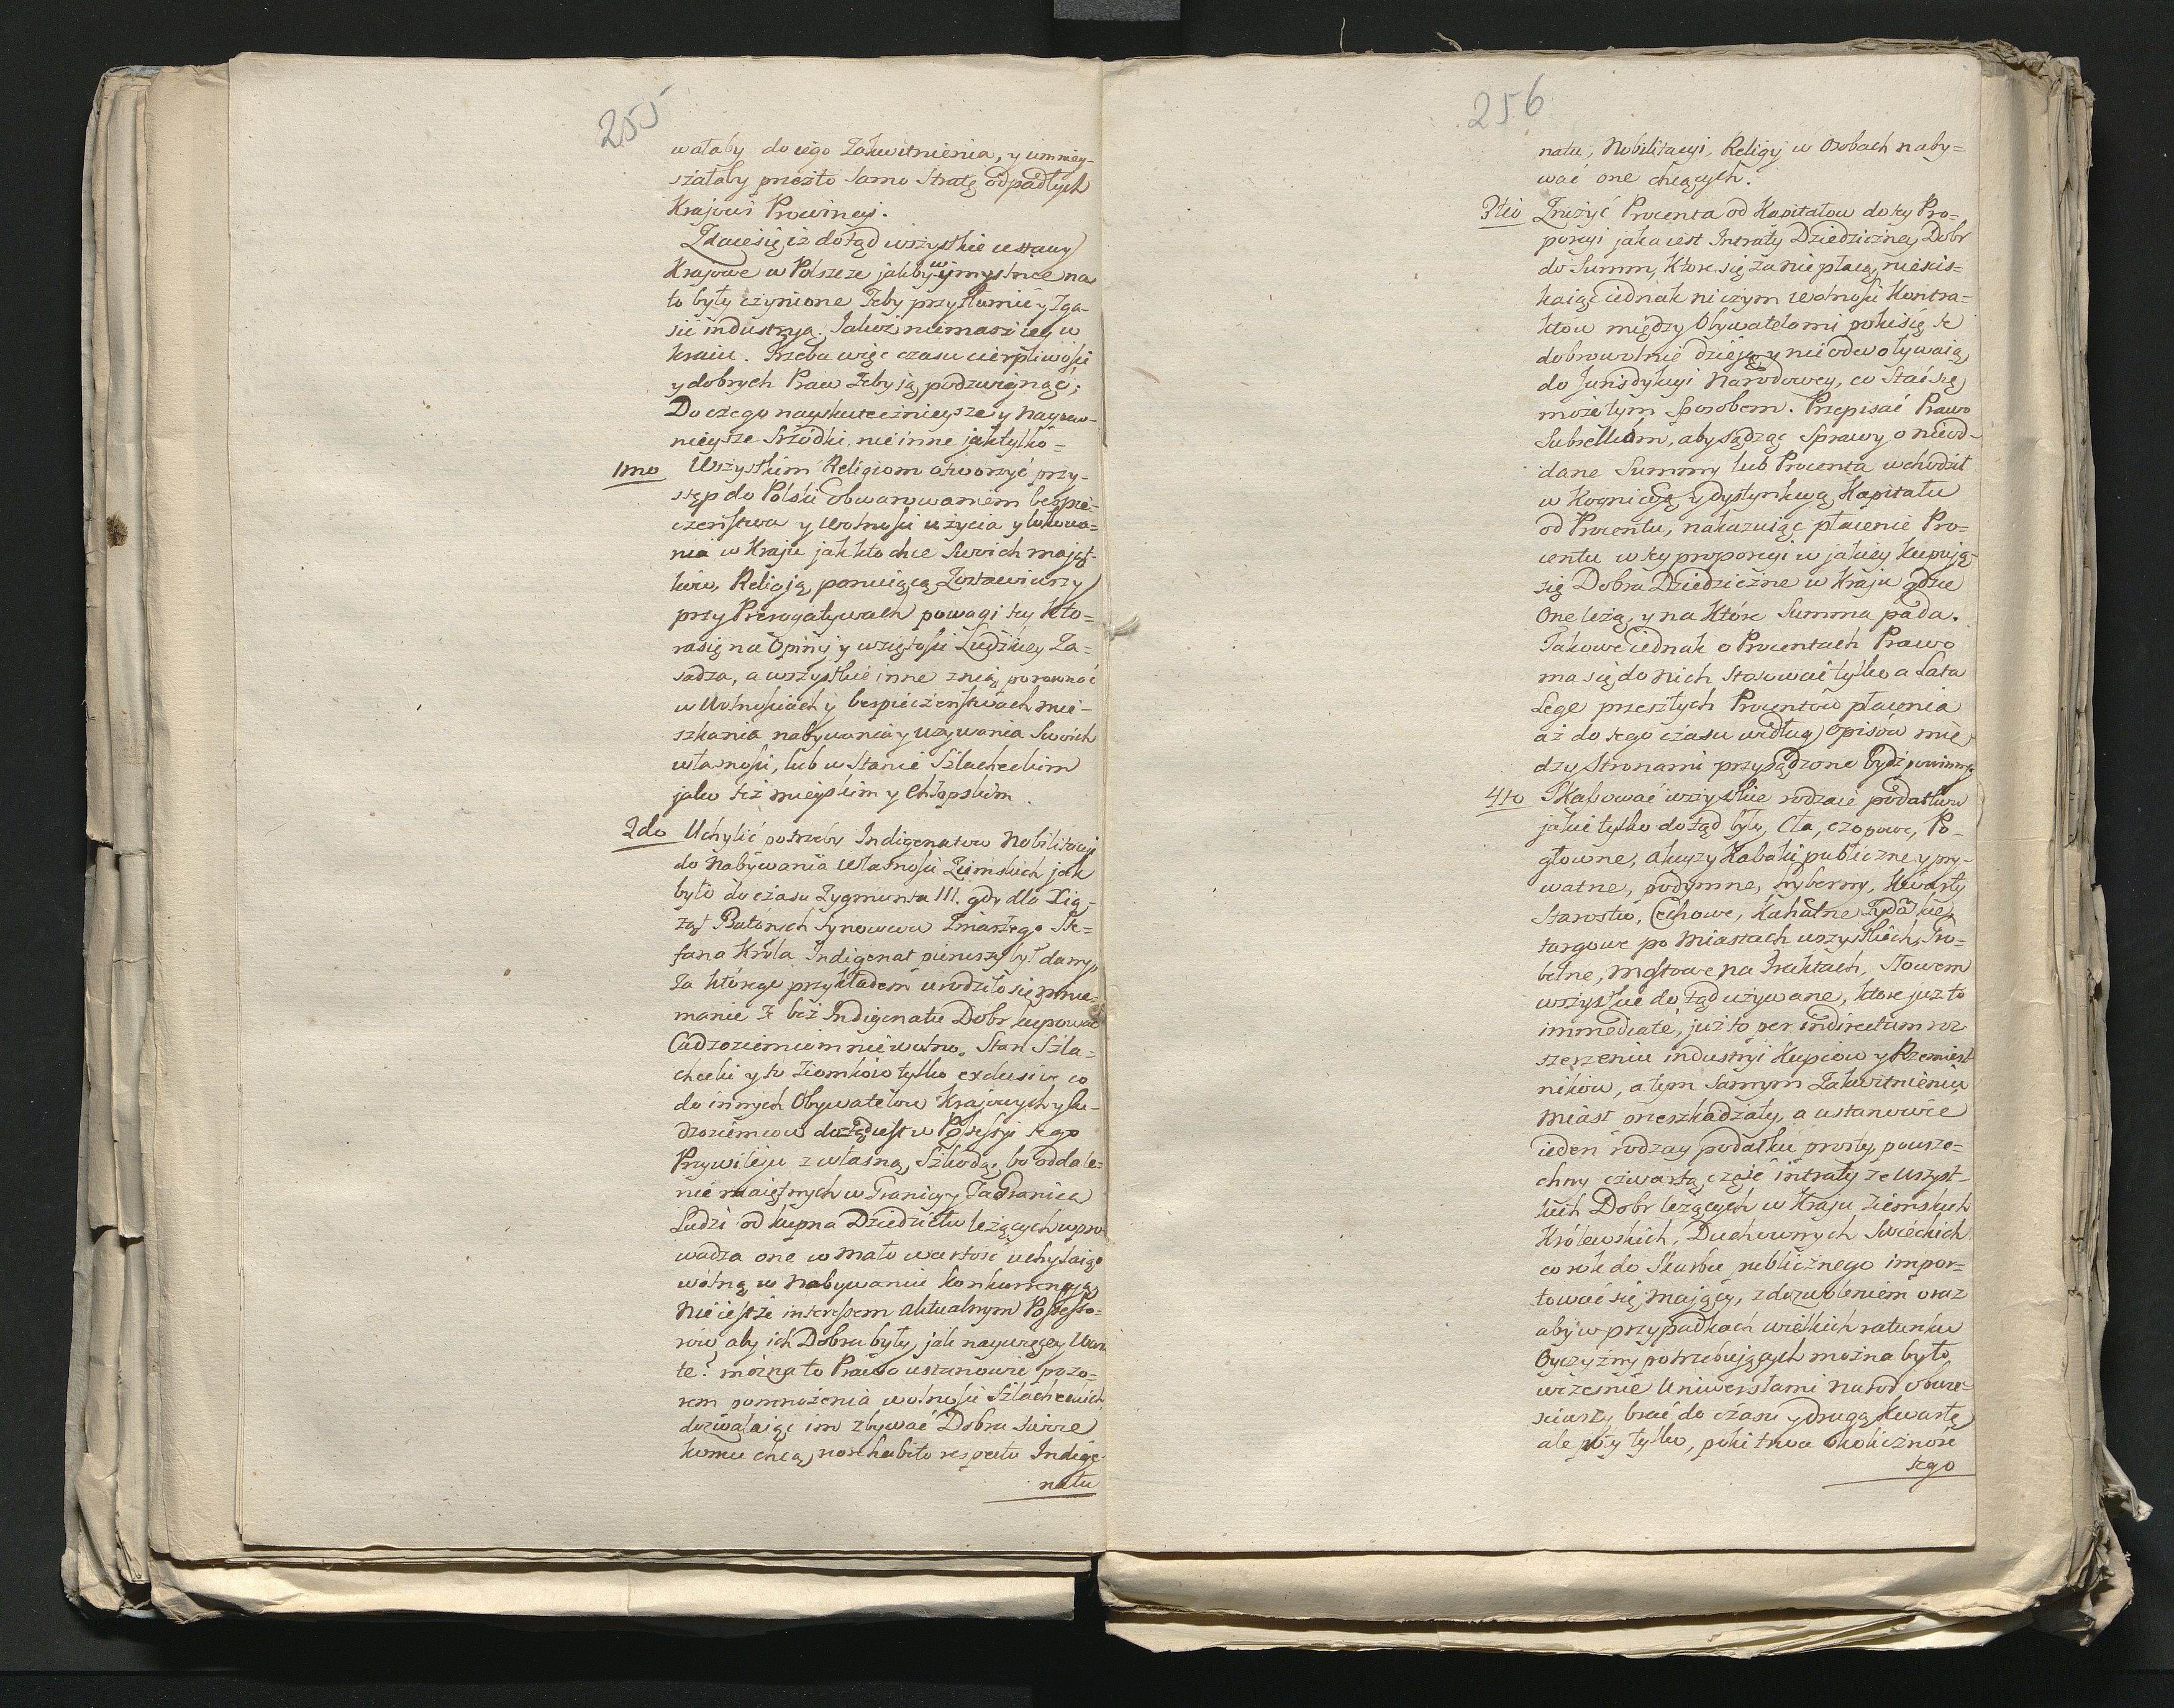 255
wałaby do iego Zakwitnienia, y umniey-
szałaby przezto samo stratę odpadłych
Krajowi Prowincyi.
Zdaiesię iż dotąd wszystkie ustawy
Krajowe w Polszcze jakby w ymystnie na
to były czynione Żeby przytłumić y Zga-
sić industryą. Jakoż niemasz iey w
kraiu. Trzeba więc czasu cierpliwości
y dobrych Praw Żeby ją podzwignąć;
Do czego nayskutecznieysze y naypew-
nieysze Srzodki, nie inne jak tylko =
1mo Wszystkim Religiom otworzyć przy-
stęp do Polski obwarowaniem bespie-
czeństwa y Wolności użycia y lokowa=
nia w Kraju jak kto chce Swoich mająt-
ków, Religią panuiącą Zostawiwszy
przy Prerogatywach powagi tey kto=
rasię na Opinij y wziętości Ludzkiey Za=
sadza, a wszystkie inne z nią porownać
w Wolnościach y bespieczeństwach mie-
szkania nabywania y uzywania Swoich
własności, lub w Stanie Szlacheckim
jako też mieyskim y Chłopskim.
2do Uchylić potrzeby Indigenatow Nobilitacyi
do Nabywania Własności Ziemskich jak
było do czasu Zygmunta III. gdy dla Xią-
żąt Batorych Synowcow Zmarłego Ste=
fana Króla Indigenat pierwszy był dany,
Za którego przykładem urodziło się mnie=
manie Że bez Indigenatu Dobr kupować
Cudzoziemcom nie wolno. Stan Szla=
checki y to Ziomków tylko exclusive co
do innych Obywatelow Krajowych y Cu-
dzoziemcow dotąd iest w Possessyi tego
Przywileju z własną Szkodą, bo oddale=
nie maiętnych w Granicy y Za Granicą
Ludzi od kupna Dziedzictw leżących wpro-
wadza one w mało wartość uchylaiąc
wolną w Nabywaniu konkurrencyą
Nie iestże interessem aktualnym Possesso=
row, aby ich Dobra były jak naywięcey War
te? można to Prawo ustanowić pozo=
rem pomnożenia wolności Szlacheckich
dozwalaiąc im zbywać Dobra Swoie
komu chcą, non habito respectu Indige
natu
256
natu, Nobilitacyi, Religij w Osobach naby=
wać one chcących.
3tio Zniżyć Procenta od Kapitałow do tey Pro=
porcyi jaka iest Intraty Dziedziczney Dobr
do Summ, Ktore się Za nie płacą, nieścis=
kaiąc iednak niczym wolności Kontra=
któw między Obywatelami poki się te
dobrowolnie dzieją y nie odwoływaią
do Jurisdykcyi Narodowey, co Stać się
może tym Sposobem. Przepisać Prawo
Subselliom, aby sądząc Sprawy o nieod=
dane Summy lub Procenta wchodził
w Kognicyą y dystynkcyą Kapitału
od Procentu, nakazuiąc płacenie Pro=
centu w tey proporcyi w jakiey kupują
się Dobra Dziedziczne w Kraju gdzie
One leżą, y na Które Summa pada.
Takowe iednak o Procentach Prawo
ma się do Nich Stosować tylko a Lata
Lege przeszłych Procentów płacenia
aż do tego czasu według opisów mię
dzy Stronami przysądzone bydź powinny.
4to Skassować wszystkie rodzaie podatkow
jakie tylko dotąd były, Cła, czopowe, Po-
głowne, akcyzy Kabaki publiczne y pry-
watne, podymne, hyberny, kwarty
Starostw, Cechowe, Kahalne Żydowskie,
targowe po Miastach wszystkich, Gro=
belne, mostowe na traktach, słowem
wszystkie dotąd używane, ktore już to
immediate, już to per indirectum roz
szerzeniu industryi Kupcow y Rzemieśl
nikow, a tym Samym Zakwitnieniu
Miast przeszkadzały, a ustanowić
ieden rodzay podatku prosty, powsze=
chny czwartą część intraty ze wszyst=
kich Dobr leżących w Kraju Ziemskich
Królewskich, Duchownych Swieckich
co rok do Skarbu publicznego impor=
tować się maiący, z dozwoleniem oraz
aby w przypadkach wielkich ratunku
Oyczyzny potrzebuiących można było
wcześnie Uniwersałami Narod obwie=
sciwszy brać do czasu y drugą kwartę
ale poty tylko, poki trwa okoliczność
tego